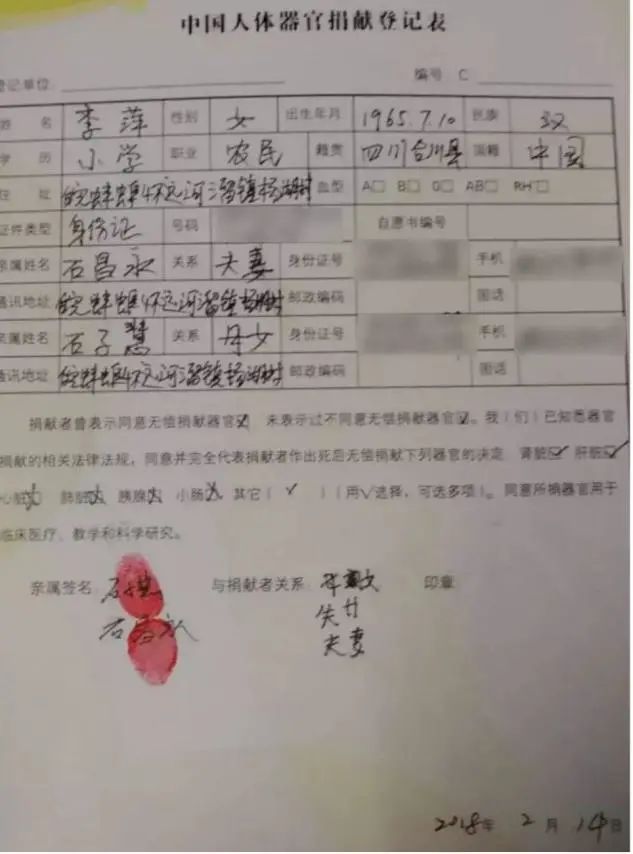 中国人体器官捐献登记表
登记单位: 编号 C
姓 名 李萍 性别 女 出生年月 1965.7.10 民族 汉
学 历 小学 职业 农民 籍贯 四川合川县 国籍 中国
住 址 皖蚌埠怀远河溜镇杨湖村 血型 A□ B□ O□ AB□ RH□
证件类型 身份证 号码 自愿书编号
亲属姓名 石昌永 关系 夫妻 身份证号 手机
通讯地址 皖蚌埠怀远河溜镇杨湖村 邮政编码 固话
亲属姓名 石子慧 关系 母女 身份证号 手机
通讯地址 皖蚌埠怀远河溜镇杨湖村 邮政编码 固话
捐献者曾表示同意无偿捐献器官☑ 未表示过不同意无偿捐献器官☑。我(们)已知悉器官
捐献的相关法律法规,同意并完全代表捐献者作出死后无偿捐献下列器官的决定 肾脏☑ 肝脏☑
心脏 肺脏 胰腺 小肠 其它( ✓ )(用√选择,可选多项)。同意所捐器官用于
临床医疗、教学和科学研究。
亲属签名: 与捐献者关系: 印章
石昌永
夫妻
2018年 2 月 14日